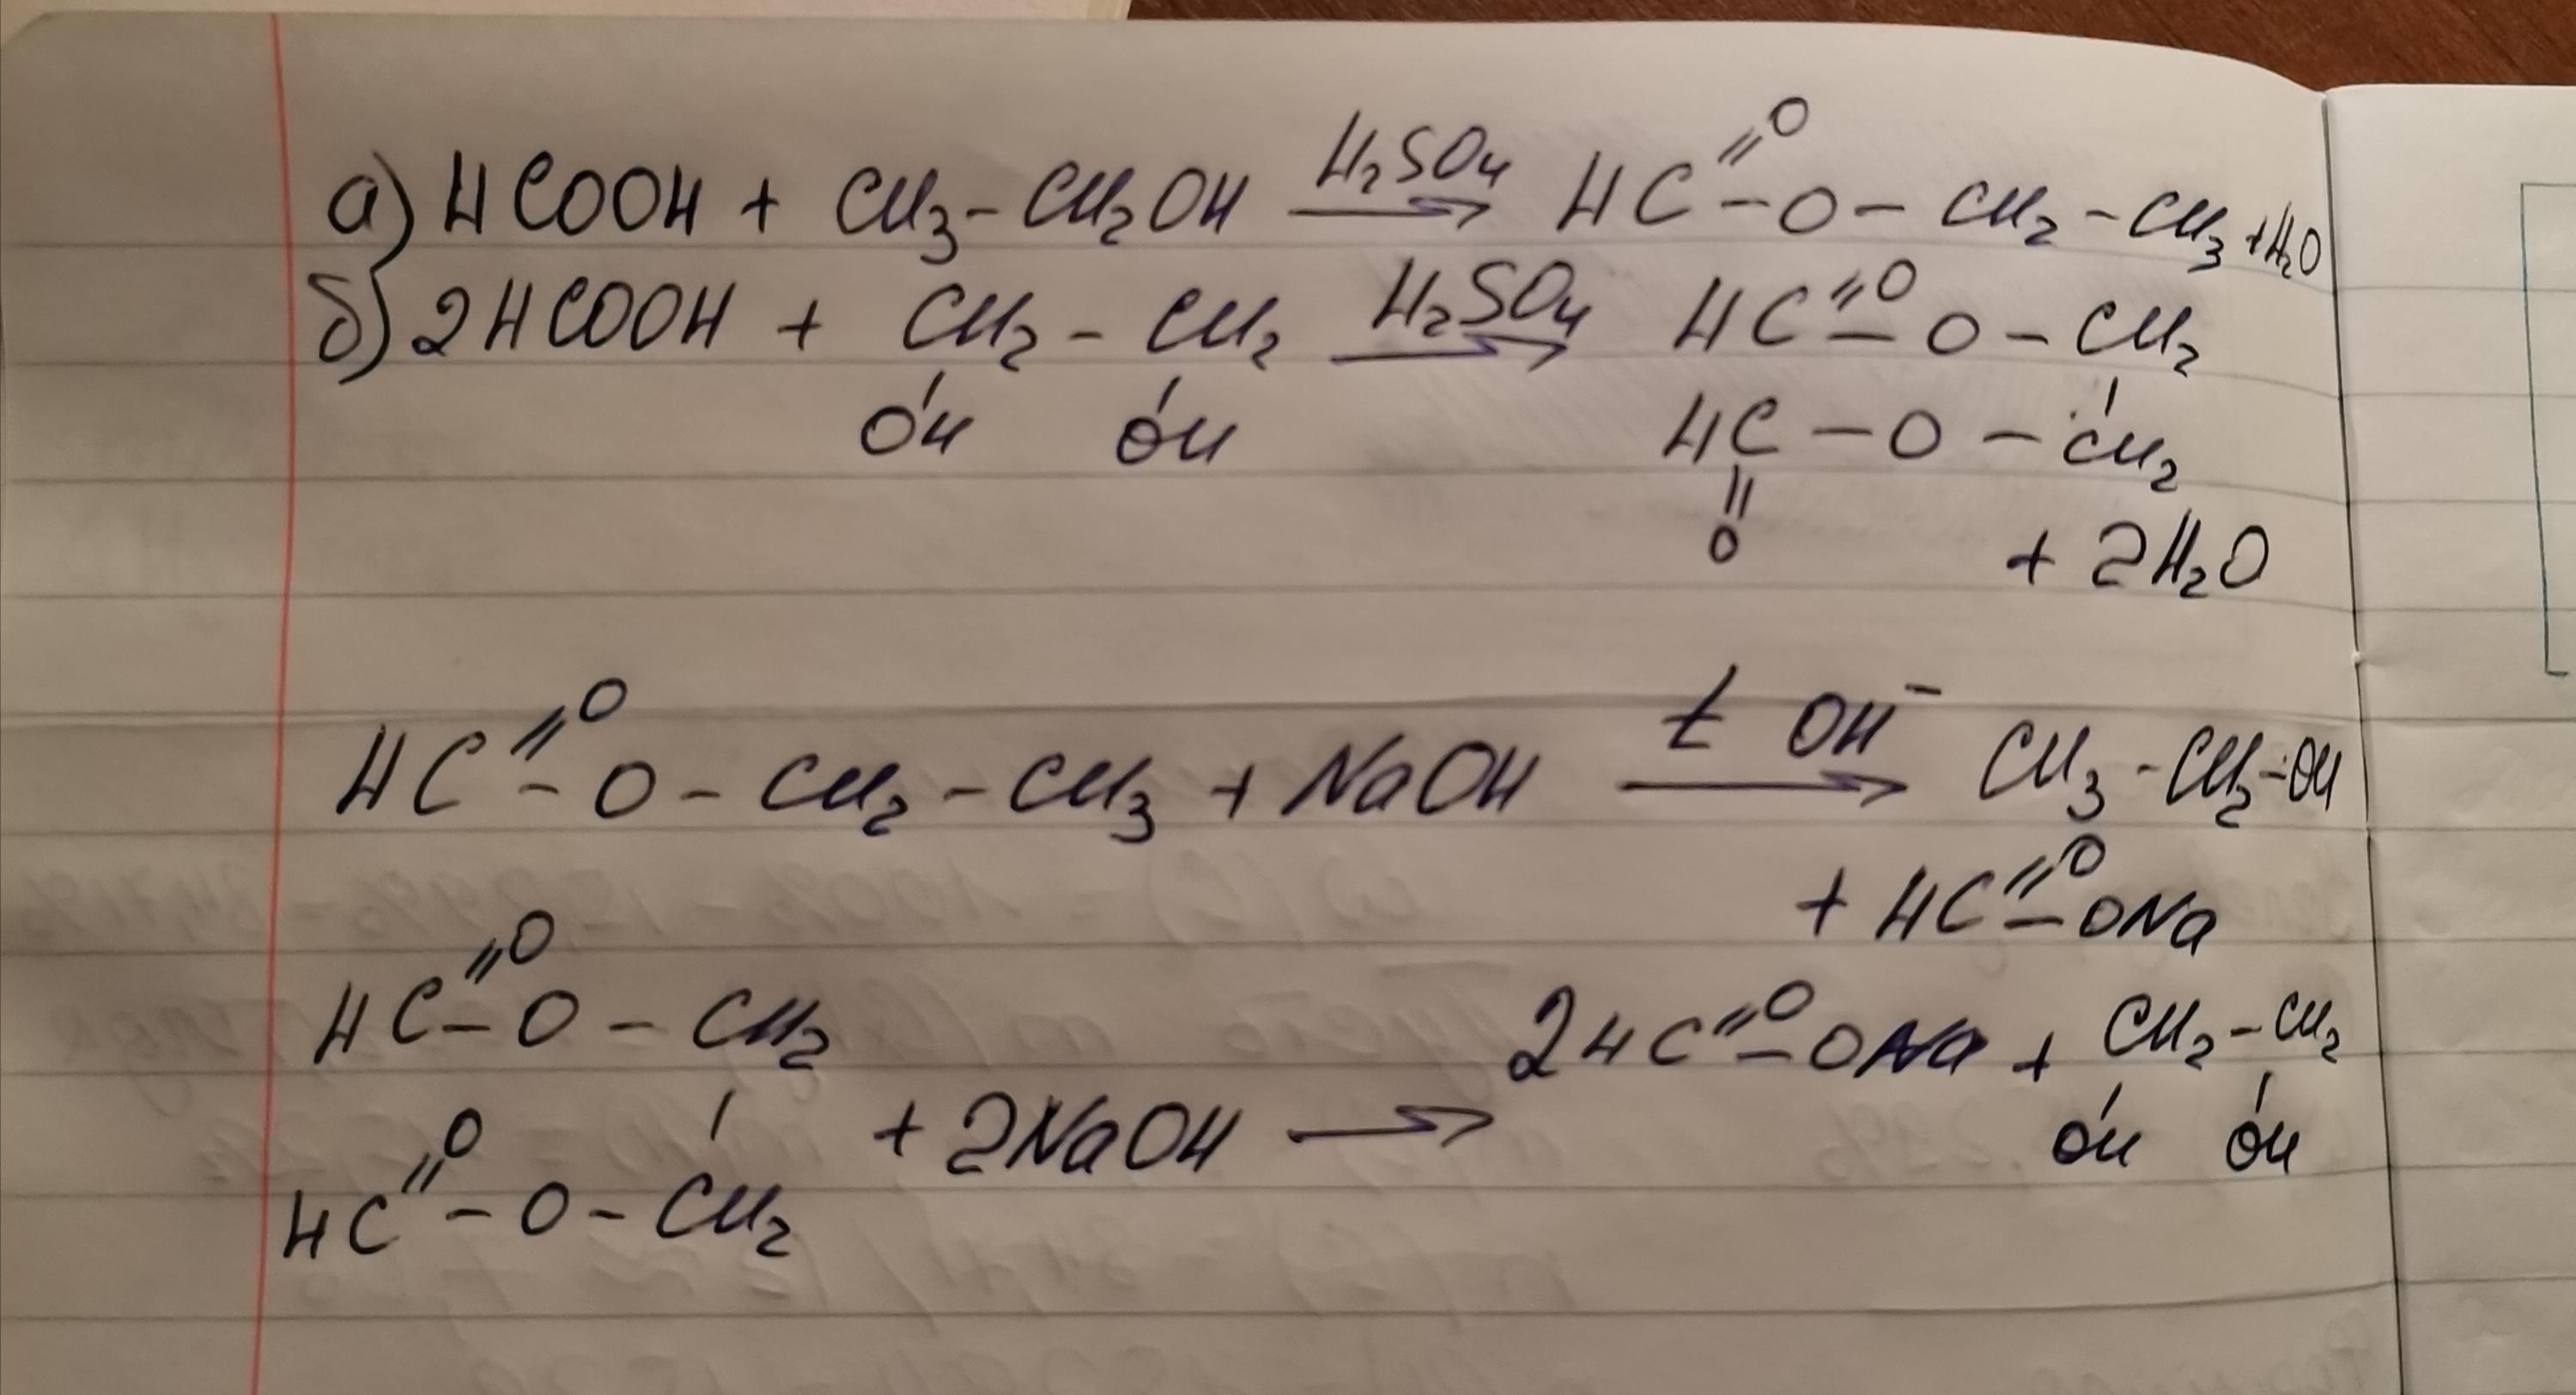 а) HCOOH + CH₃-CH₂OH →(H₂SO₄) HC(=O)-O-CH₂-CH₃ + H₂O
б) 2HCOOH + CH₂-CH₂ →(H₂SO₄) HC(=O)-O-CH₂
OH OH HC-O-CH₂
O
+ 2H₂O
HC(=O)-O-CH₂-CH₃ + NaOH →(t OH⁻) CH₃-CH₂-OH
+ HC(=O)-ONa
HC(=O)-O-CH₂ 2HC(=O)-ONa + CH₂-CH₂
+ 2NaOH → OH OH
HC(=O)-O-CH₂